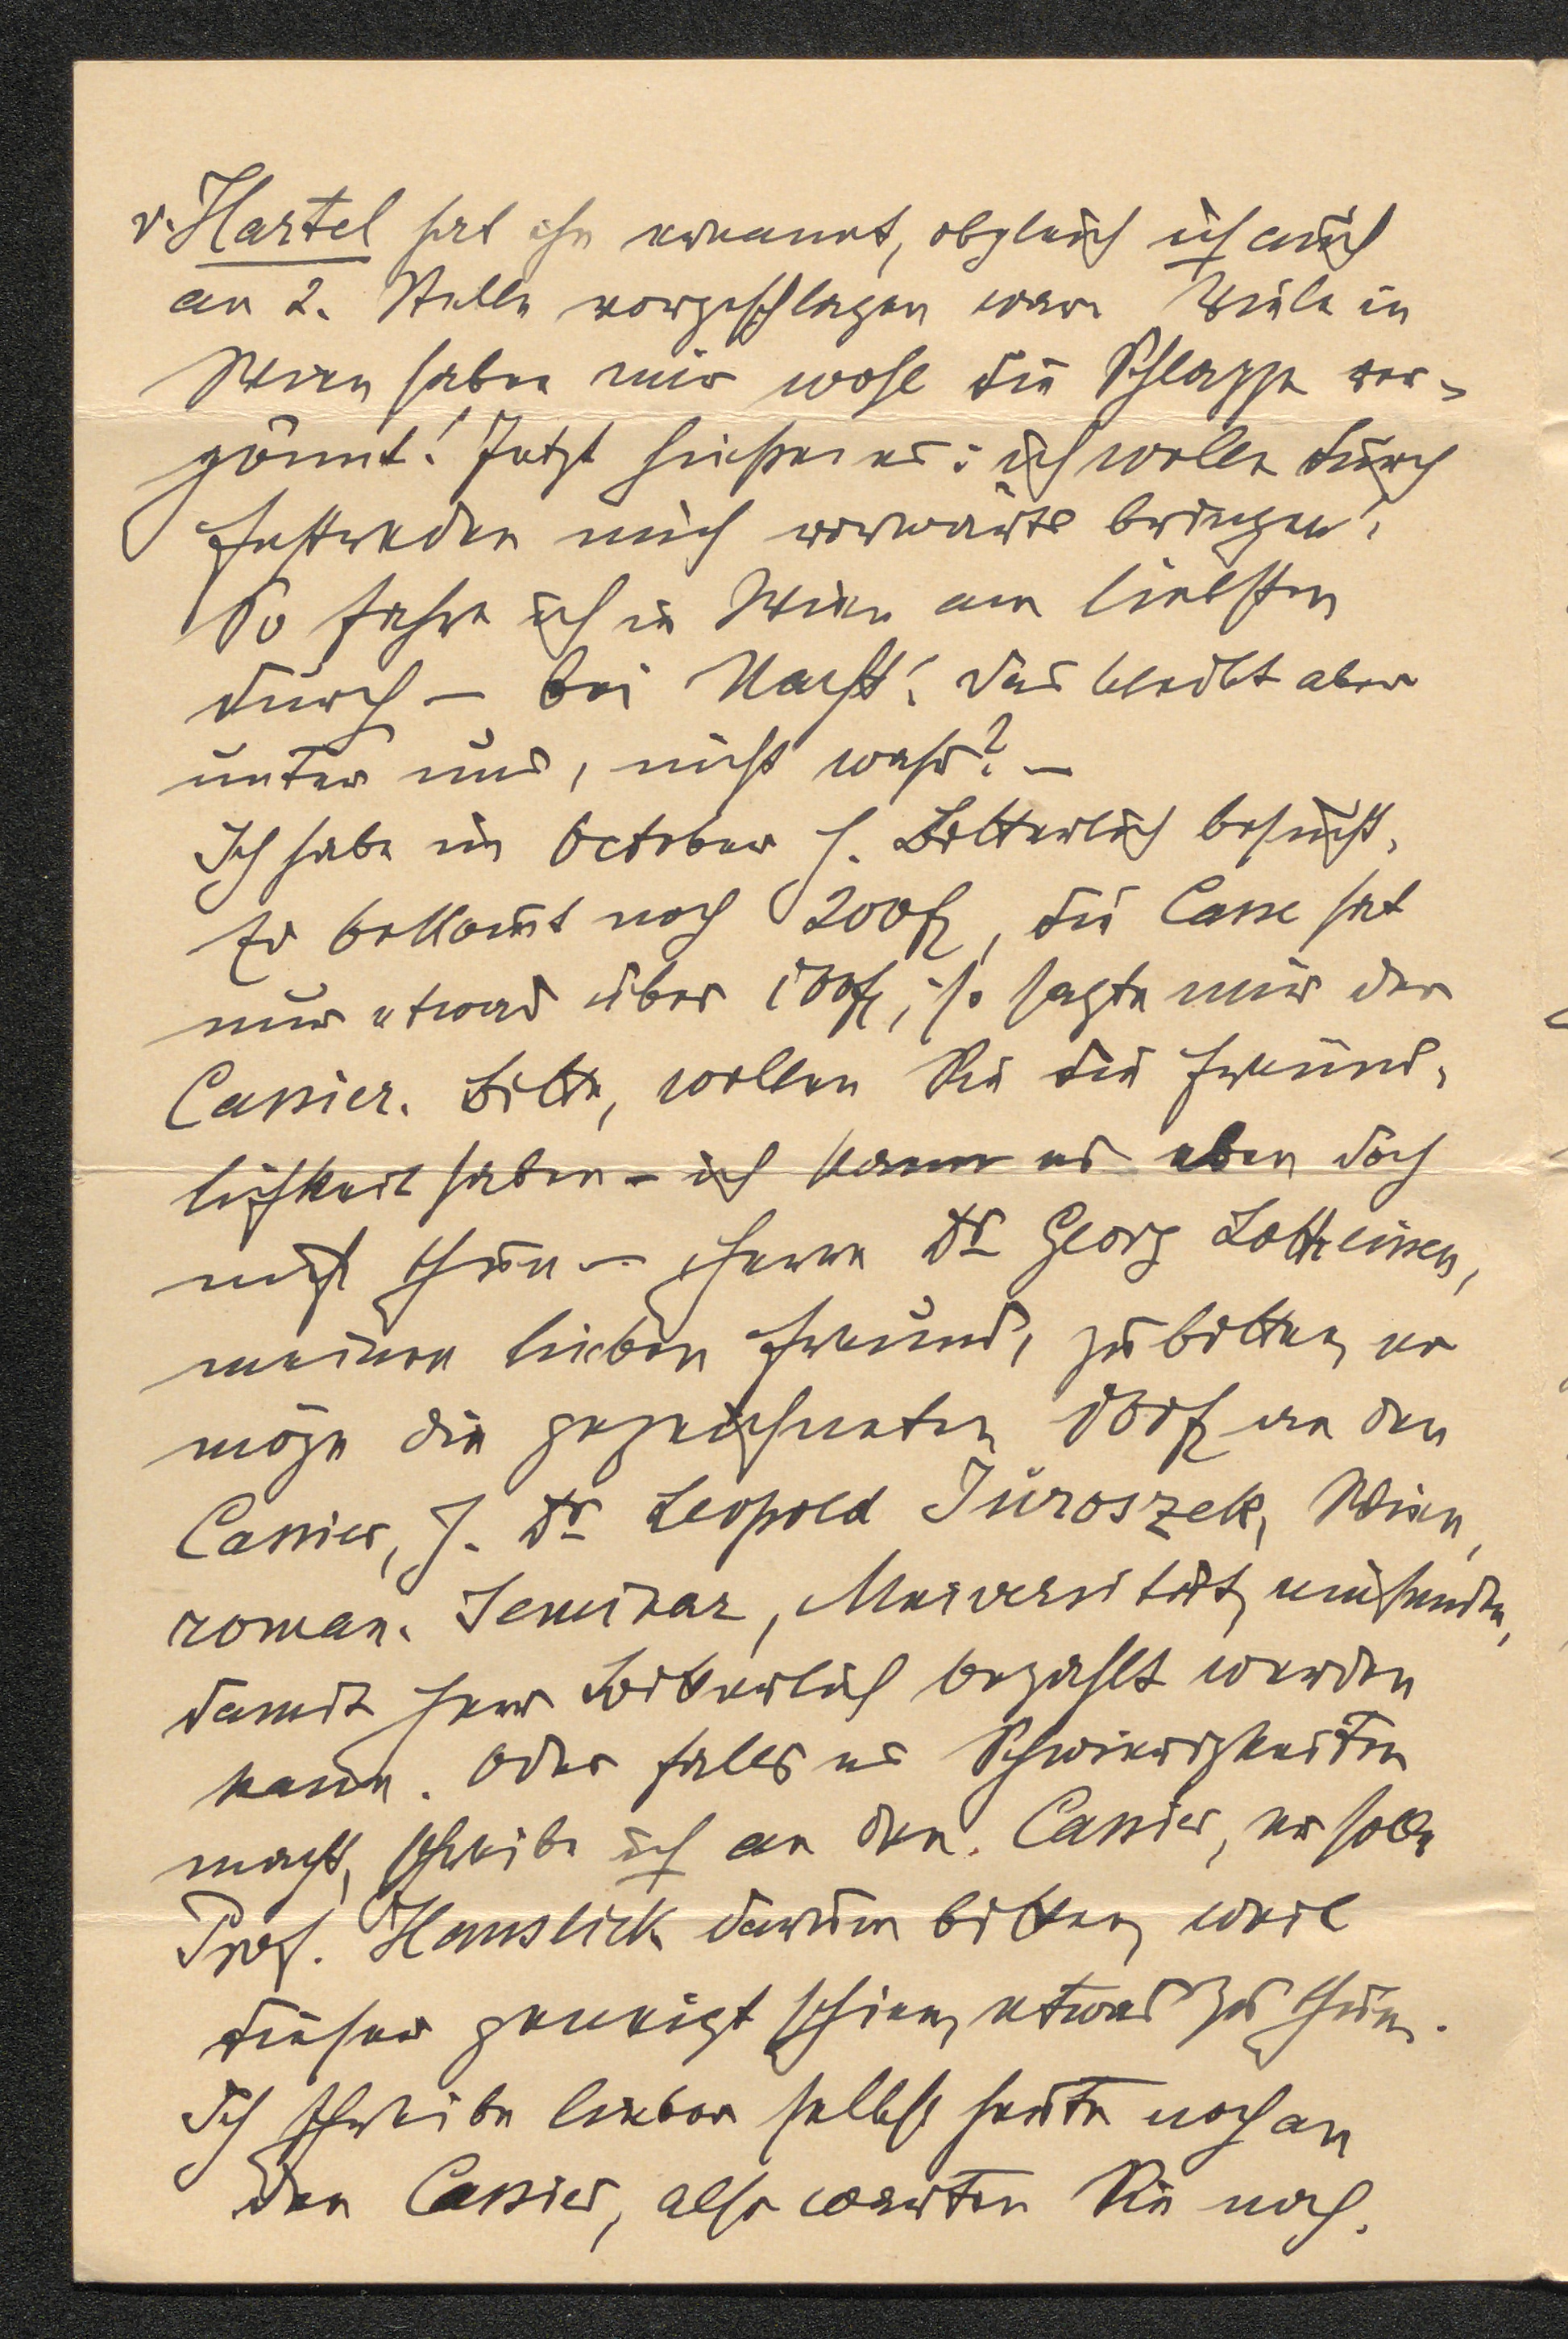 v. Hartel hat ihn ernannt, obgleich ich auch
an 2. Stelle vorgeschlagen war. Viele in
Wien haben mir wohl die Schlappe ver-
gönnt! Jetzt hieße es: ich wolle durch
Festreden mich vorwärts bringen!
So fahre ich in Wien am liebsten
durch – bei Nacht! Das bleibt aber
unter uns, nicht wahr? –
Ich habe im October H. Bitterlich besucht.
Er bekommt noch 200 fl, die Casse hat
nur etwas über 100 fl, so sagte mir der
Cassier. Bitte, wollen Sie die Freund-
lichkeit haben – ich kann es eben doch
nicht thun – Herrn Dr Georg Lotheissen,
meinen lieben Freund, zu bitten, er
möge die gezeichneten 100 fl an den
Cassier, H. Dr Leopold Juroszek, Wien,
roman. Seminar, Universität, einsenden,
damit Herr Bitterlich bezahlt werden
kann. Oder falls es Schwierigkeiten
macht, schreibe ich an den Cassier, er solle
Prof. Hanslick darum bitten, weil
dieser geneigt schien, etwas zu thun.
Ich schreibe lieber selbst heute noch an
den Cassier, also warten Sie noch.